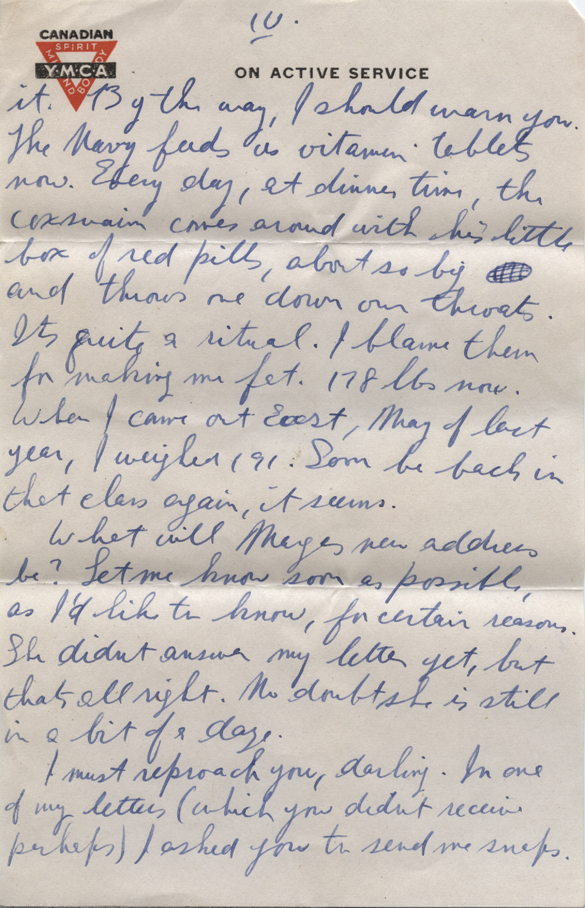 10.
CANADIAN
SPIRIT
MIND BODY
Y·M·C·A
ON ACTIVE SERVICE
it. By the way, I should warn you.
The Navy feeds us vitamin tablets
now. Every day, at dinner time, the
coxswain comes around with his little
box of red pills, about so big
and throws one down our throats.
Its quite a ritual. I blame them
for making me fat. 178 lbs now.
When I came out East, May of last
year, I weighed 191. Soon be back in
that class again, it seems.
What will Marges new address
be? Let me know soon as possible,
as I'd like to know, for certain reasons.
She didnt answer my letter yet, but
thats all right. No doubt she is still
in a bit of a daze.
I must reproach you, darling. In one
of my letters (which you didn't receive
perhaps) I asked you to send me snaps.